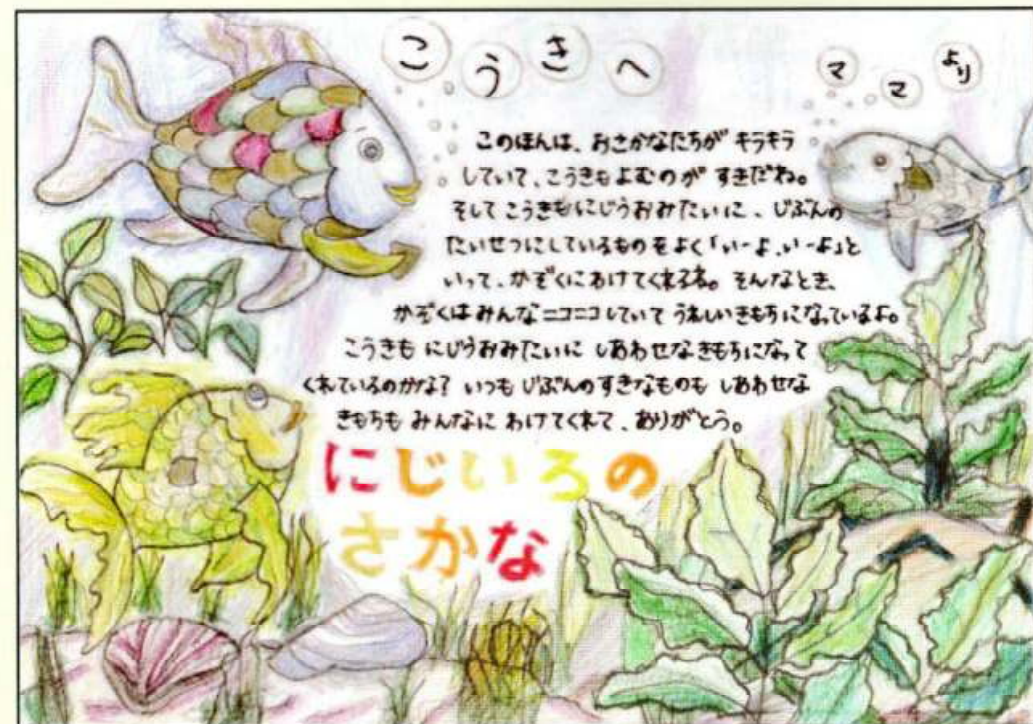 こうきへ
ママより
このほんは、おさかなたちが キラキラ
していて、こうきもよむのが すきだね。
そして こうきもにじうおみたいに、じぶんの
たいせつにしているものをよく「いーよ、いーよ」と
いって、かぞくにわけてくれるね。そんなとき、
かぞくは みんな ニコニコしていて うれしいきもちになっているよ。
こうきも にじうおみたいに しあわせなきもちになって
くれているのかな? いつも じぶんのすきなものも しあわせな
きもちも みんなに わけてくれて、ありがとう。
にじいろの
さかな